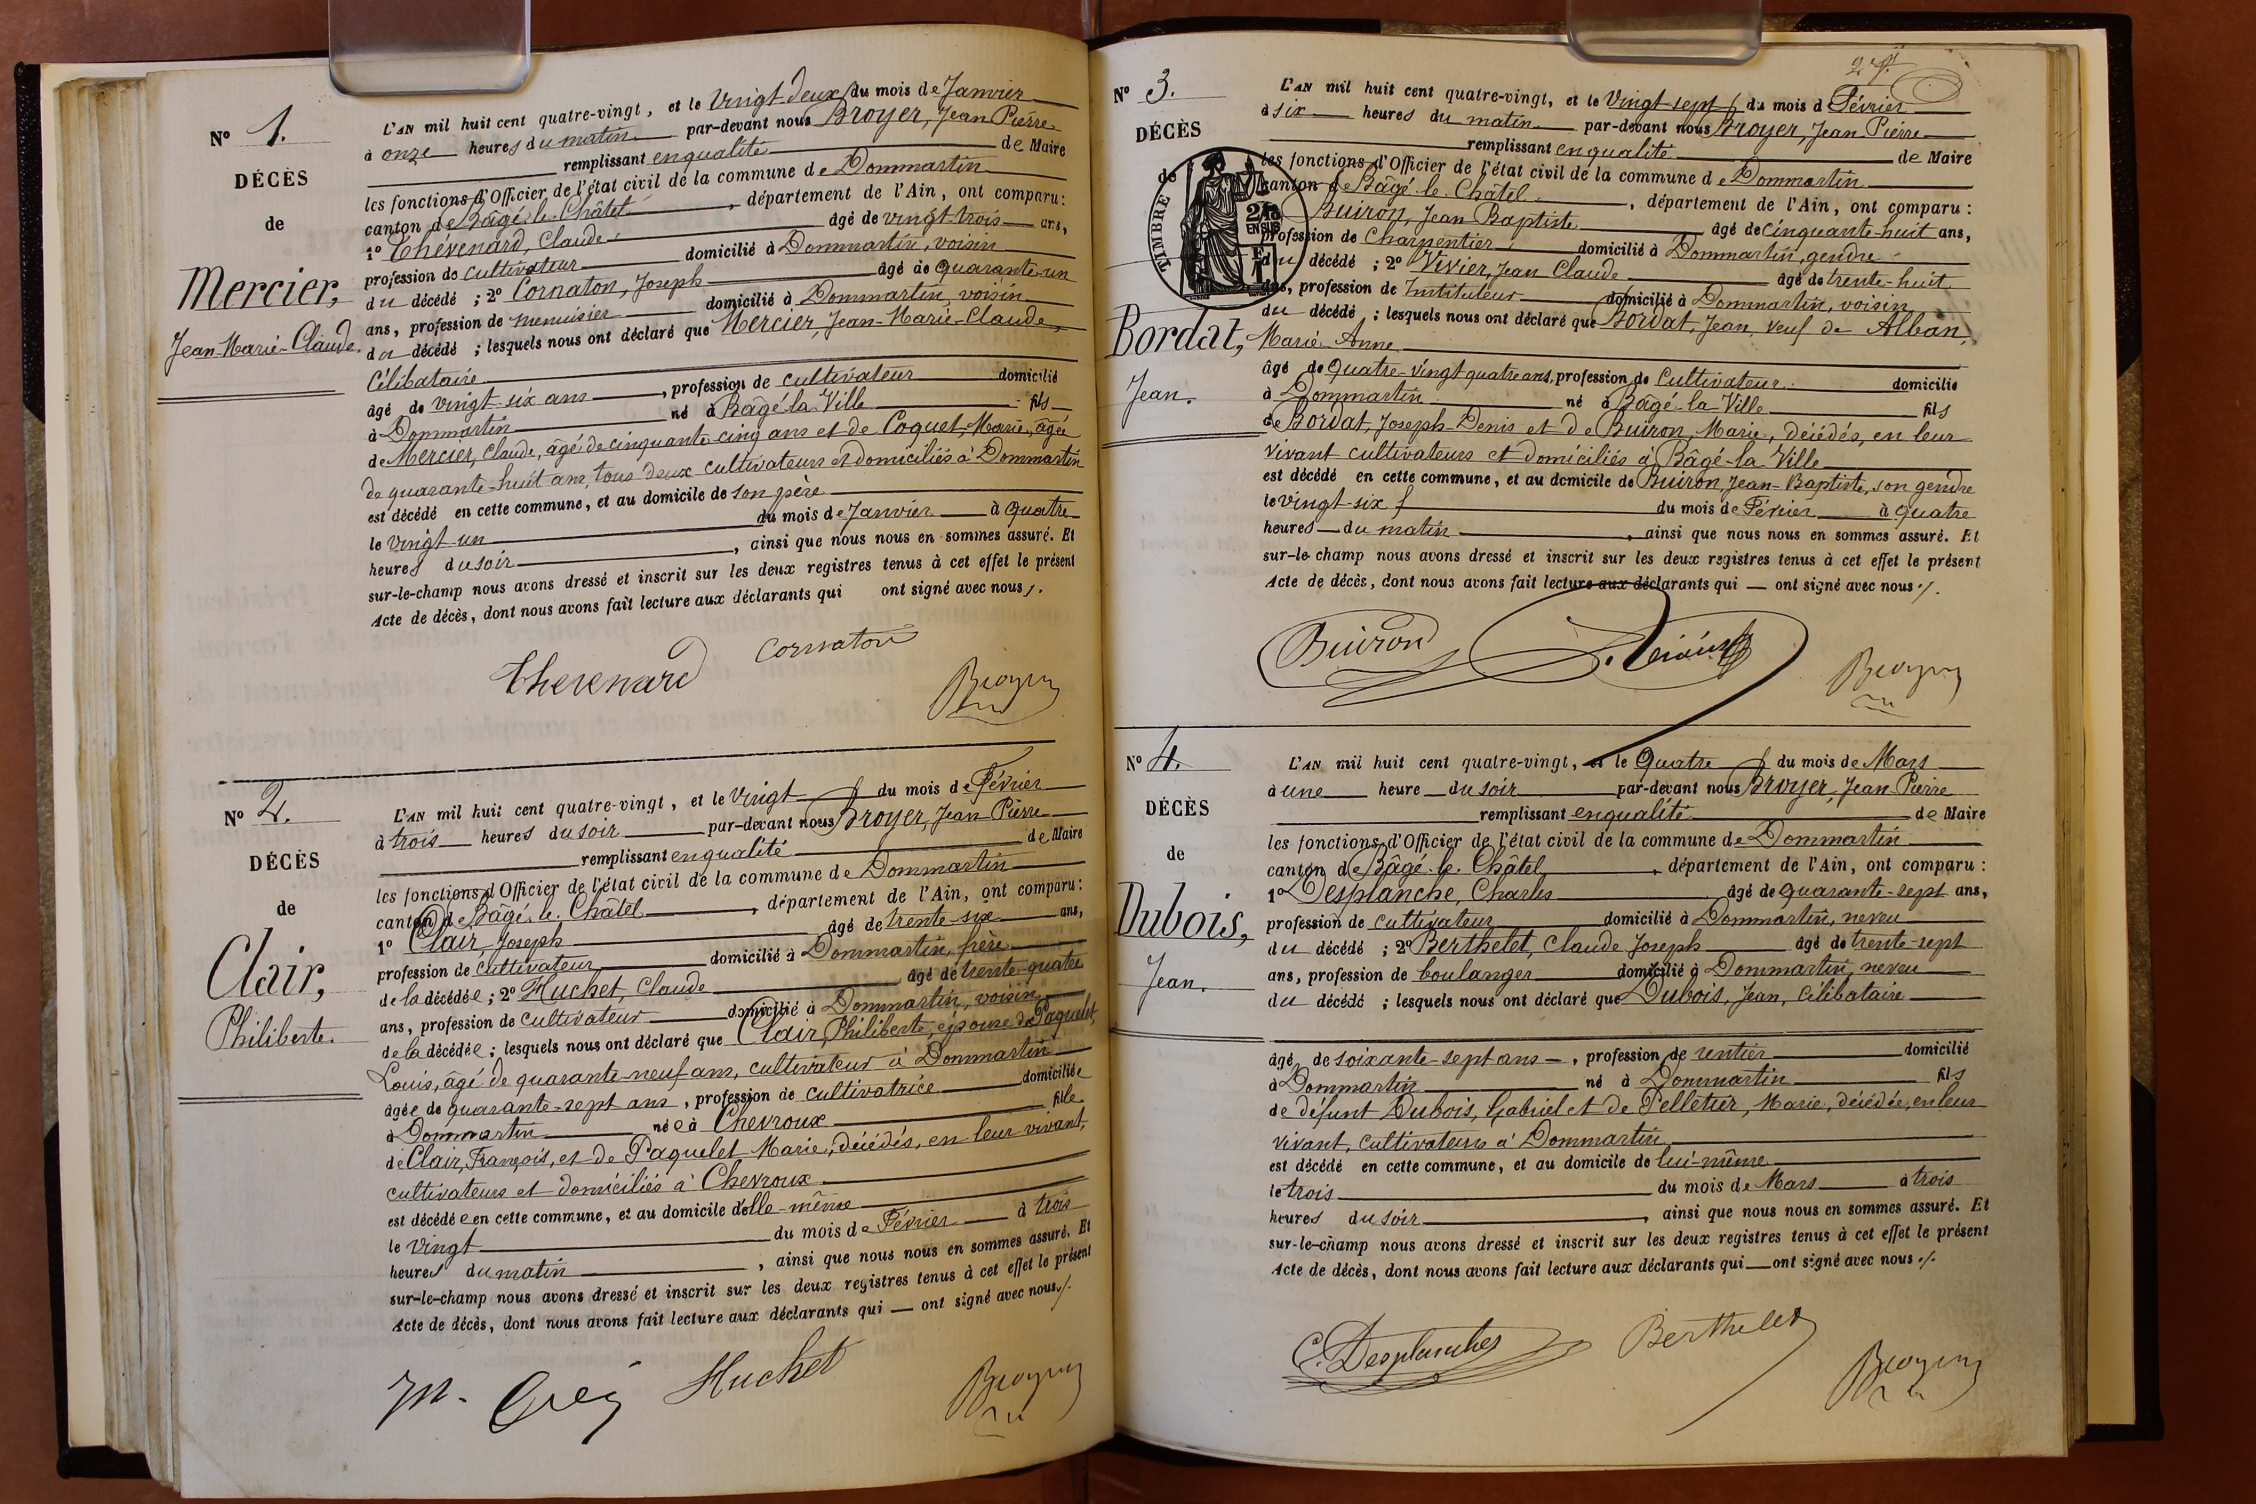 N° 1.
DÉCÈS
de
Mercier,
Jean-Marie-Claude.
L'AN mil huit cent quatre-vingt, et le Vingt deux du mois de Janvier
à onze heures du matin par-devant nous Broyer, Jean Pierre
remplissant en qualité de Maire
les fonctions d'Officier de l'état civil de la commune de Dommartin
canton de Bâgé-le-Châtel, département de l'Ain, ont comparu :
1° Thévenard, Claude âgé de vingt-trois ans,
profession de cultivateur domicilié à Dommartin, voisin
du décédé ; 2° Cornaton, Joseph âgé de quarante-un
ans, profession de menuisier domicilié à Dommartin, voisin
du décédé ; lesquels nous ont déclaré que Mercier, Jean-Marie-Claude,
célibataire
âgé de vingt-six ans, profession de cultivateur domicilié
à Dommartin né à Bâgé-la-Ville fils
de Mercier, Claude, âgé de cinquante-cinq ans et de Coquet, Marie, âgée
de quarante-huit ans, tous deux cultivateurs et domiciliés à Dommartin
est décédé en cette commune, et au domicile de son père
le vingt-un du mois de Janvier à quatre
heures du soir, ainsi que nous nous en sommes assuré. Et
sur-le-champ nous avons dressé et inscrit sur les deux registres tenus à cet effet le présent
Acte de décès, dont nous avons fait lecture aux déclarants qui ont signé avec nous ./.
Thevenard Cornaton Broyer
N° 2.
DÉCÈS
de
Clair,
Philiberte.
L'AN mil huit cent quatre-vingt, et le Vingt du mois de Février
à trois heures du soir par-devant nous Broyer, Jean Pierre
remplissant en qualité de Maire
les fonctions d'Officier de l'état civil de la commune de Dommartin
canton de Bâgé-le-Châtel, département de l'Ain, ont comparu :
1° Clair, Joseph âgé de trente-six ans,
profession de cultivateur domicilié à Dommartin, frère
de la décédée ; 2° Huchet, Claude âgé de trente-quatre
ans, profession de cultivateur domicilié à Dommartin, voisin
de la décédée ; lesquels nous ont déclaré que Clair, Philiberte, épouse de Paquelet,
Louis, âgé de quarante-neuf ans, cultivateur à Dommartin
âgée de quarante-sept ans, profession de cultivatrice domiciliée
à Dommartin née à Chevroux fille
de Clair, François, et de Paquelet Marie, décédés, en leur vivant,
cultivateurs et domiciliés à Chevroux
est décédée en cette commune, et au domicile d'elle-même
le Vingt du mois de Février à trois
heures du matin, ainsi que nous nous en sommes assuré. Et
sur-le-champ nous avons dressé et inscrit sur les deux registres tenus à cet effet le présent
Acte de décès, dont nous avons fait lecture aux déclarants qui ont signé avec nous ./.
Huchet Broyer
N° 3.
DÉCÈS
de
TIMBRE
Bordat,
Jean.
L'AN mil huit cent quatre-vingt, et le Vingt-sept du mois d Février
à six heures du matin par-devant nous Broyer, Jean Pierre
remplissant en qualité de Maire
les fonctions d'Officier de l'état civil de la commune de Dommartin
canton de Bâgé-le-Châtel, département de l'Ain, ont comparu :
Buiron, Jean Baptiste âgé de cinquante-huit ans,
profession de Charpentier domicilié à Dommartin, gendre
du décédé ; 2° Vivier, Jean Claude âgé de trente-huit
ans, profession de Instituteur domicilié à Dommartin, voisin
du décédé ; lesquels nous ont déclaré que Bordat, Jean, veuf de Alban,
Marie Anne
âgé de Quatre-vingt quatre ans, profession de Cultivateur domicilié
à Dommartin né à Bâgé-la-Ville fils
de Bordat, Joseph-Denis et de Buiron, Marie, décédés, en leur
vivant cultivateurs et domiciliés à Bâgé-la-Ville
est décédé en cette commune, et au domicile de Buiron, Jean-Baptiste, son gendre
le vingt-six du mois de Février à quatre
heures du matin, ainsi que nous nous en sommes assuré. Et
sur-le-champ nous avons dressé et inscrit sur les deux registres tenus à cet effet le présent
Acte de décès, dont nous avons fait lecture aux déclarants qui ont signé avec nous ./.
Buiron Broyer
N° 4.
DÉCÈS
de
Dubois,
Jean.
L'AN mil huit cent quatre-vingt, et le Quatre du mois de Mars
à une heure du soir par-devant nous Broyer, Jean Pierre
remplissant en qualité de Maire
les fonctions d'Officier de l'état civil de la commune de Dommartin
canton de Bâgé-le-Châtel, département de l'Ain, ont comparu :
1° Desplanche, Charles âgé de quarante-sept ans,
profession de cultivateur domicilié à Dommartin, neveu
du décédé ; 2° Berthelet, Claude Joseph âgé de trente-sept
ans, profession de boulanger domicilié à Dommartin, neveu
du décédé ; lesquels nous ont déclaré que Dubois, Jean, célibataire
âgé de soixante-sept ans, profession de rentier domicilié
à Dommartin né à Dommartin fils
de défunt Dubois, Gabriel et de Pelletier, Marie, décédée, en leur
vivant, cultivateurs à Dommartin
est décédé en cette commune, et au domicile de lui-même
le trois du mois de Mars à trois
heures du soir, ainsi que nous nous en sommes assuré. Et
sur-le-champ nous avons dressé et inscrit sur les deux registres tenus à cet effet le présent
Acte de décès, dont nous avons fait lecture aux déclarants qui ont signé avec nous ./.
C. Desplanches Berthelet Broyer